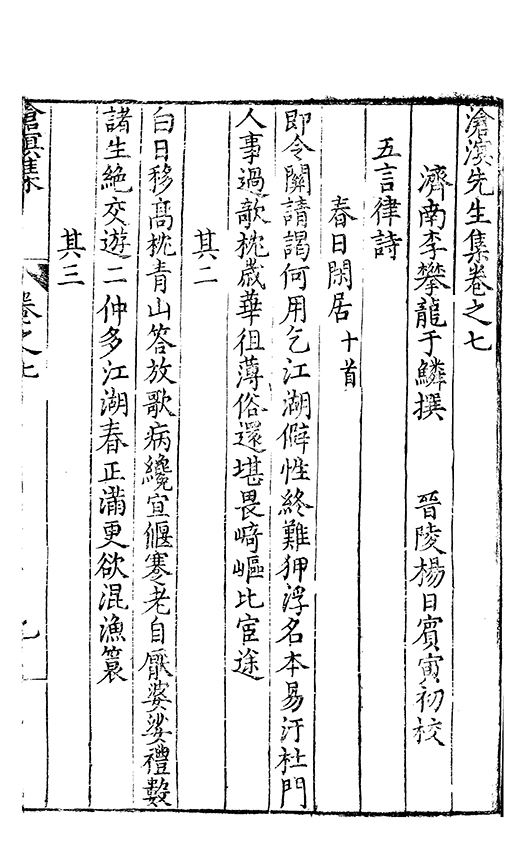 滄溟先生集卷之七
濟南李攀龍于鱗撰　晉陵楊日賓寅初校
五言律詩
春日閑居十首
即令關請謁何用乞江湖僻性終難狎浮名本易汙杜門
人事過歌枕歲華徂薄俗還堪畏崎嶇比宦途
其二
白日移高枕青山答放歌病纔宜偃蹇老自厭婆娑禮數
諸生絶交遊二仲多江湖春正滿更欲混漁簑
其三
滄溟集
卷之七